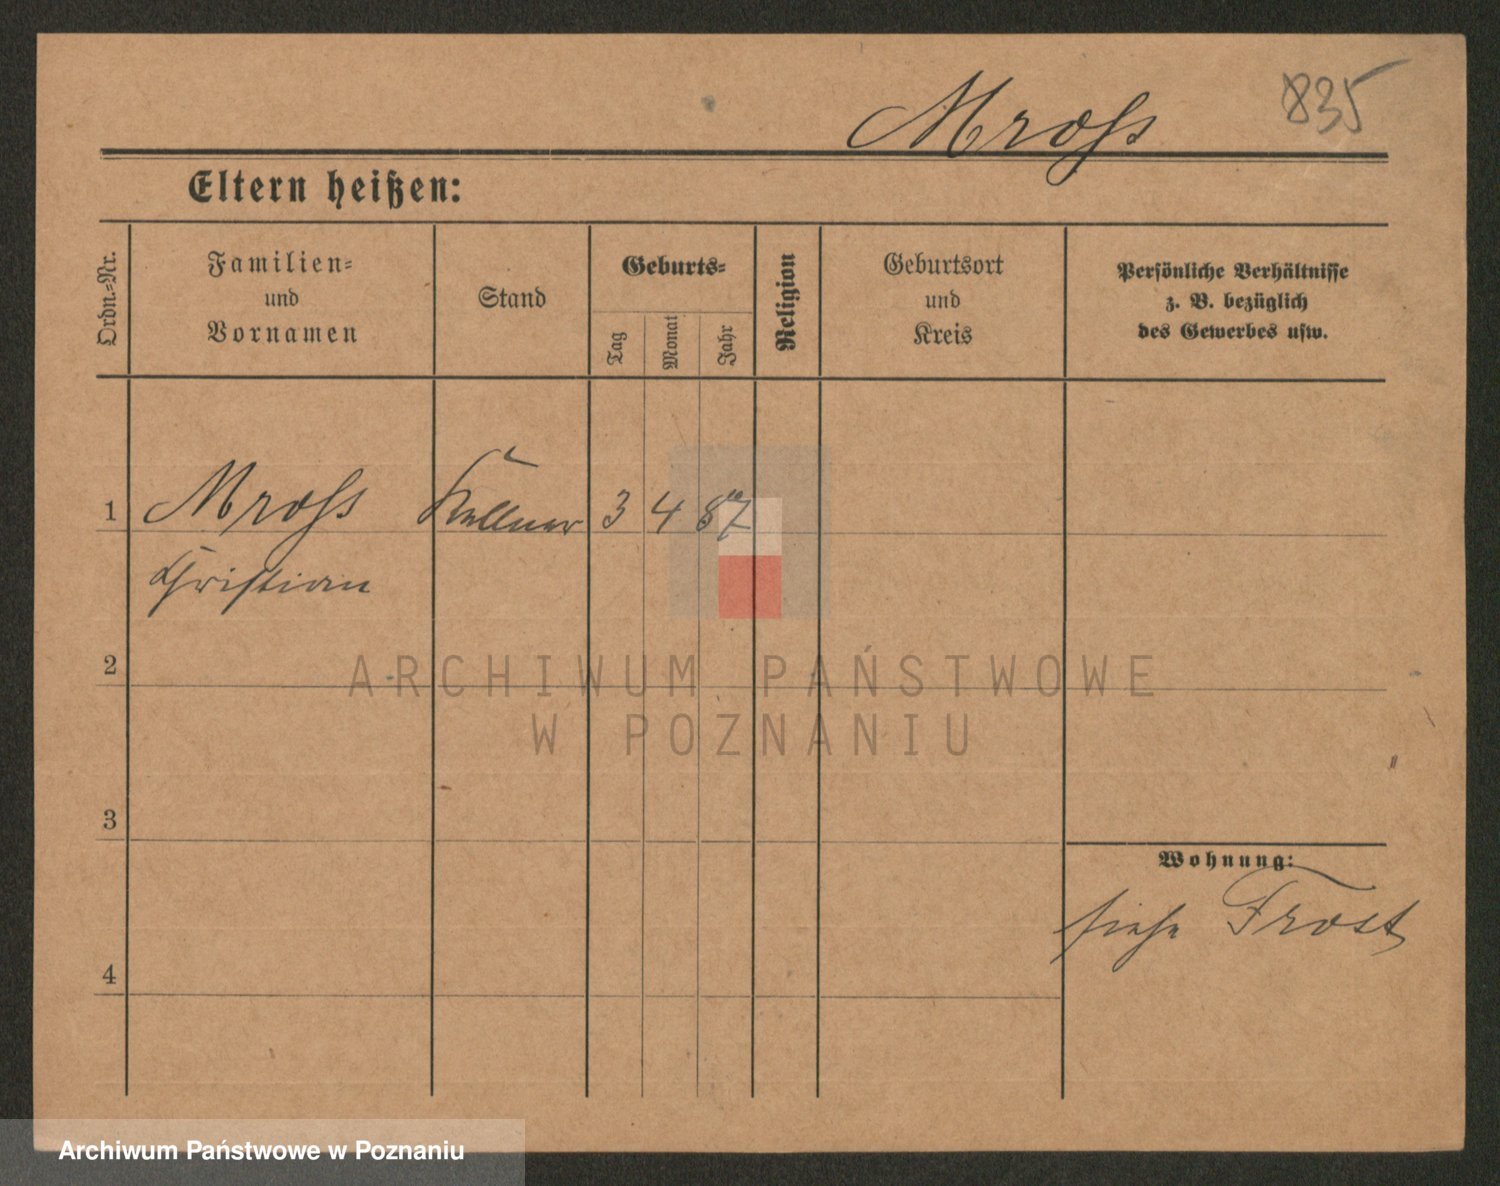 Mross
835
Eltern heißen:
Ordn.-Nr.
Familien-
und
Vornamen
Stand
Geburts-
Tag
Monat
Jahr
Religion
Geburtsort
und
Kreis
Persönliche Verhältnisse
z. B. bezüglich
des Gewerbes usw.
1 Mross Kellner 3 4 87
Christian
2
3
Wohnung:
siehe Frost
4
ARCHIWUM PAŃSTWOWE
W POZNANIU
Archiwum Państwowe w Poznaniu